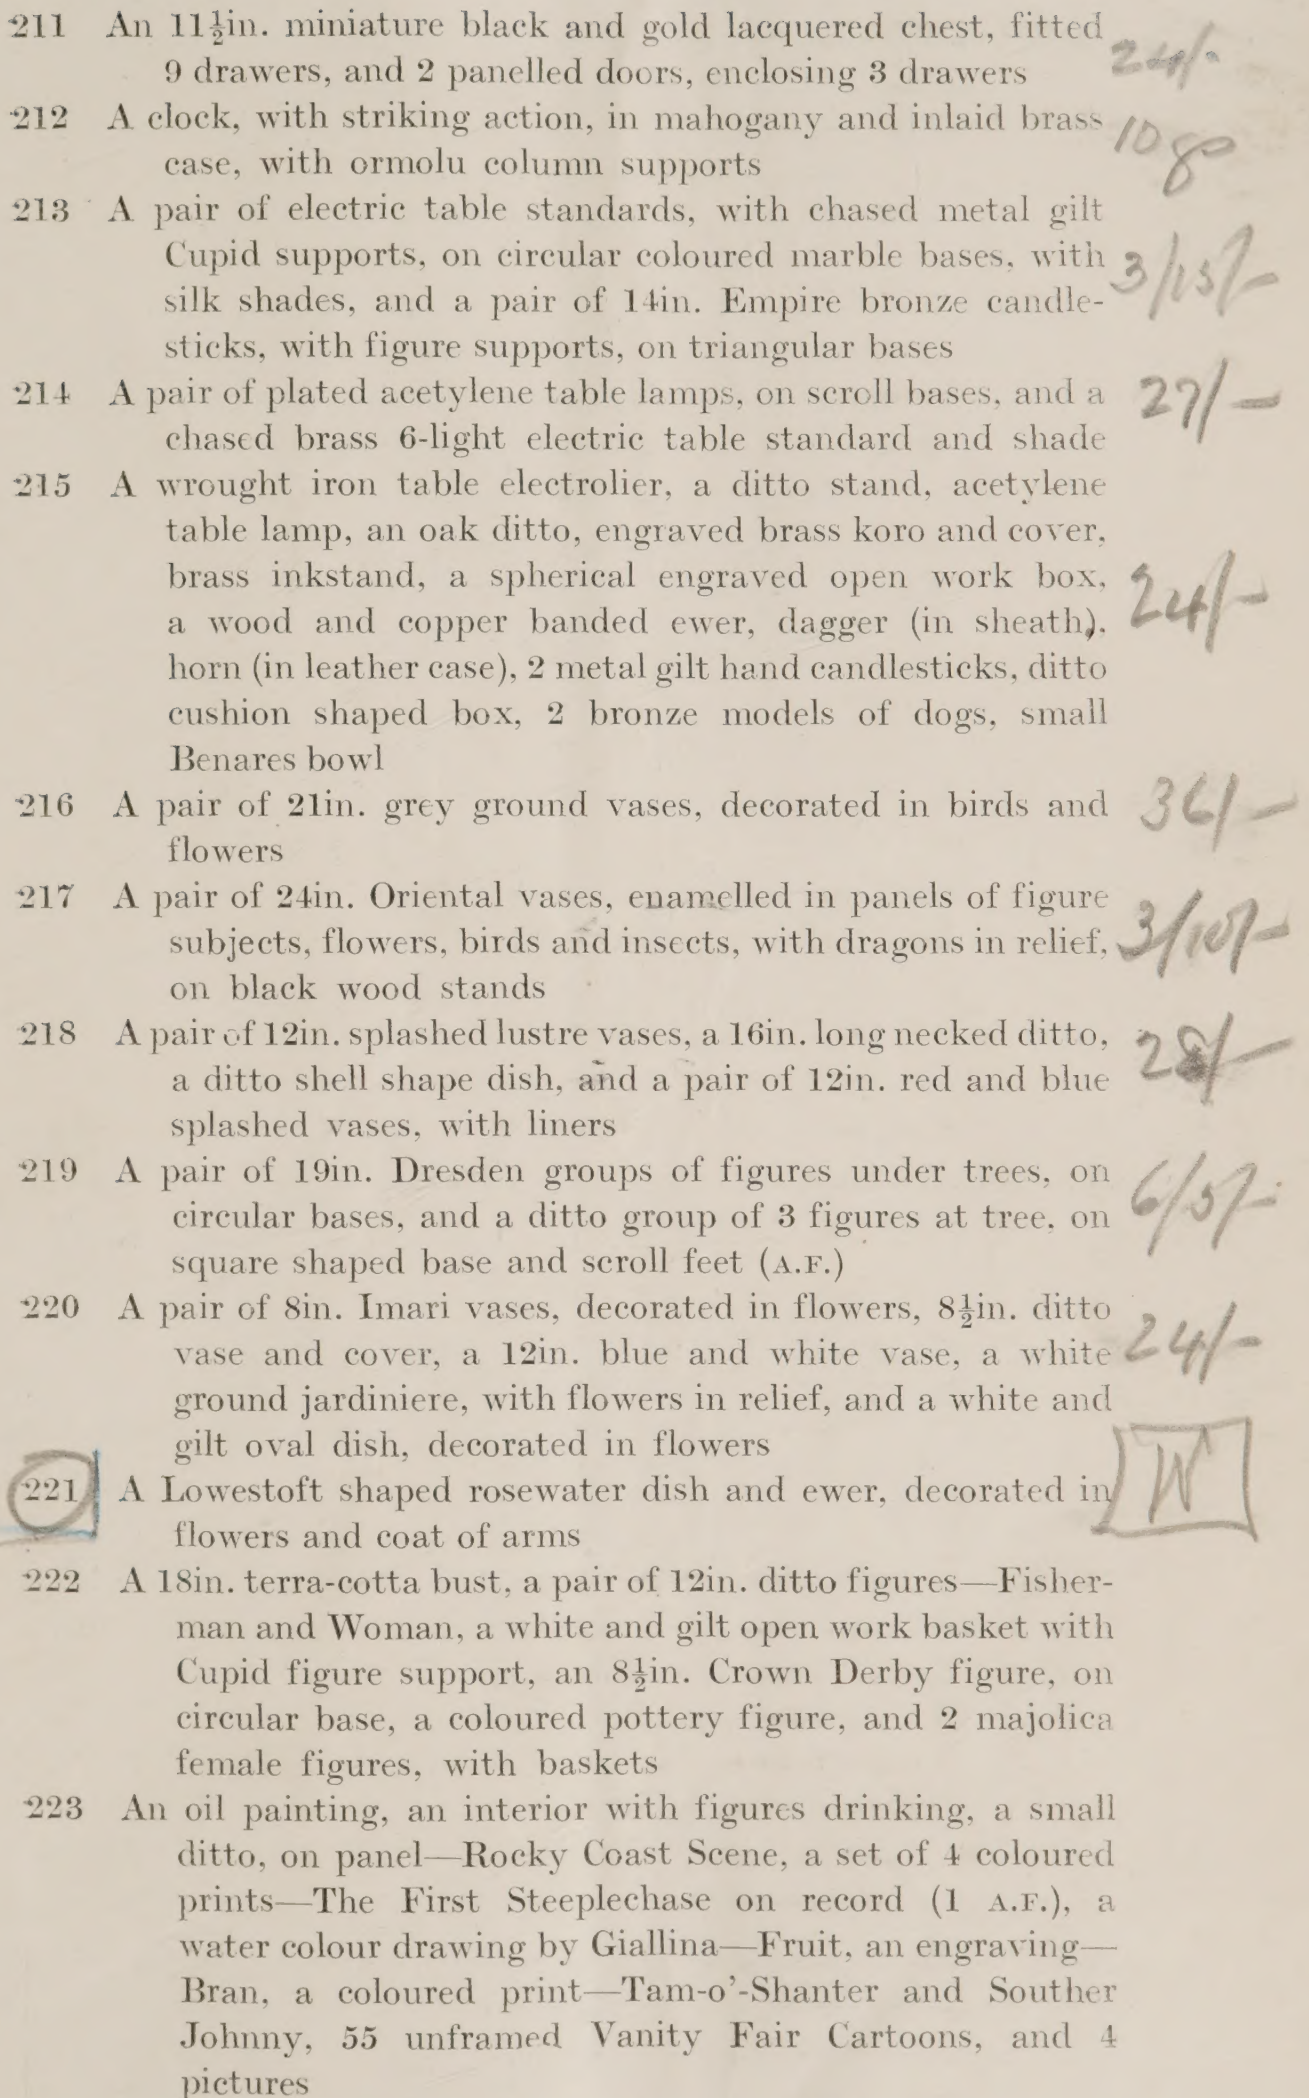 211 An 11½in. miniature black and gold lacquered chest, fitted
9 drawers, and 2 panelled doors, enclosing 3 drawers 24/-
212 A clock, with striking action, in mahogany and inlaid brass
case, with ormolu column supports
213 A pair of electric table standards, with chased metal gilt
Cupid supports, on circular coloured marble bases, with 3/15/-
silk shades, and a pair of 14in. Empire bronze candle-
sticks, with figure supports, on triangular bases
214 A pair of plated acetylene table lamps, on scroll bases, and a 27/-
chased brass 6-light electric table standard and shade
215 A wrought iron table electrolier, a ditto stand, acetylene
table lamp, an oak ditto, engraved brass koro and cover,
brass inkstand, a spherical engraved open work box,
a wood and copper banded ewer, dagger (in sheath), 24/-
horn (in leather case), 2 metal gilt hand candlesticks, ditto
cushion shaped box, 2 bronze models of dogs, small
Benares bowl
216 A pair of 21in. grey ground vases, decorated in birds and 36/-
flowers
217 A pair of 24in. Oriental vases, enamelled in panels of figure
subjects, flowers, birds and insects, with dragons in relief, 3/10/-
on black wood stands
218 A pair of 12in. splashed lustre vases, a 16in. long necked ditto, 28/-
a ditto shell shape dish, and a pair of 12in. red and blue
splashed vases, with liners
219 A pair of 19in. Dresden groups of figures under trees, on
circular bases, and a ditto group of 3 figures at tree, on 6/5/-
square shaped base and scroll feet (A.F.)
220 A pair of 8in. Imari vases, decorated in flowers, 8½in. ditto
vase and cover, a 12in. blue and white vase, a white 24/-
ground jardiniere, with flowers in relief, and a white and
gilt oval dish, decorated in flowers
221 A Lowestoft shaped rosewater dish and ewer, decorated in W
flowers and coat of arms
222 A 18in. terra-cotta bust, a pair of 12in. ditto figures—Fisher-
man and Woman, a white and gilt open work basket with
Cupid figure support, an 8½in. Crown Derby figure, on
circular base, a coloured pottery figure, and 2 majolica
female figures, with baskets
223 An oil painting, an interior with figures drinking, a small
ditto, on panel—Rocky Coast Scene, a set of 4 coloured
prints—The First Steeplechase on record (1 A.F.), a
water colour drawing by Giallina—Fruit, an engraving—
Bran, a coloured print—Tam-o'-Shanter and Souther
Johnny, 55 unframed Vanity Fair Cartoons, and 4
pictures